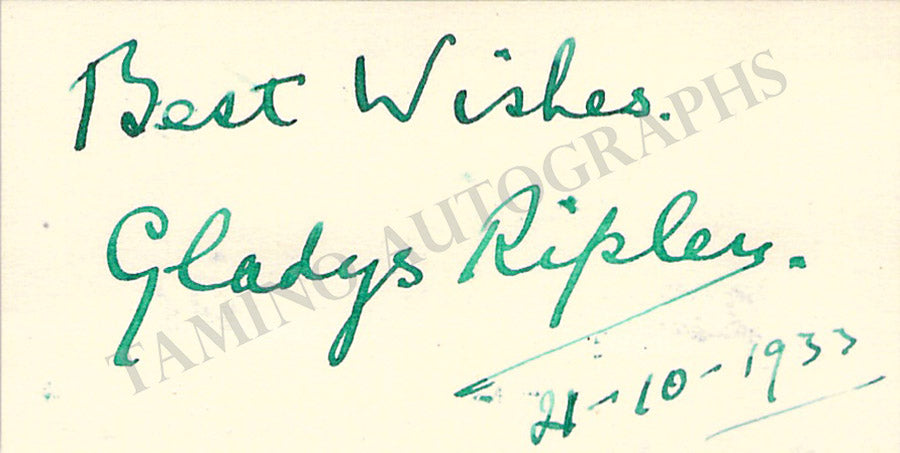 Best Wishes.
Gladys Ripley.
21-10-1933
TAMINO AUTOGRAPHS